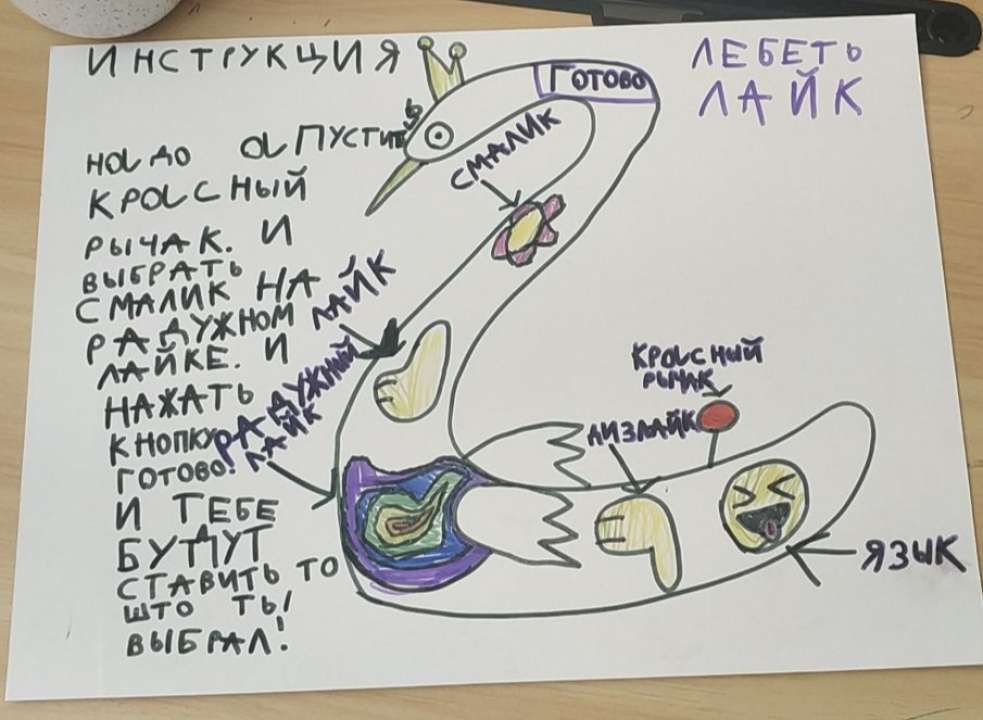 ИНСТРУКЦИЯ
НОДО ОПУСТИТЬ
КРОСНЫЙ
РЫЧАК. И
ВЫБРАТЬ
СМАЛИК НА
РАДУЖНОМ
ЛАЙКЕ. И
НАЖАТЬ
КНОПКУ
ГОТОВО!
И ТЕБЕ
БУДУТ
СТАВИТЬ ТО
ШТО ТЫ
ВЫБРАЛ!
ЛЕБЕТЬ
ЛАЙК
ГОТОВО
СМАЛИК
ЛАЙК
РАДУЖНЫЙ
ЛАЙК
КРОСНЫЙ
РЫЧАК
ДИЗЛАЙК
ЯЗЫК